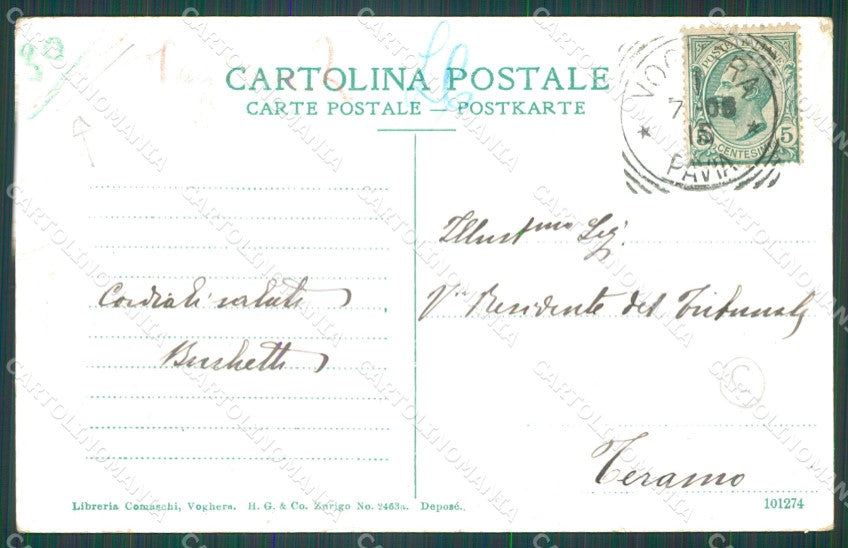 CARTOLINA POSTALE
CARTE POSTALE — POSTKARTE
VOGHERA
PAVIA
POSTE ITALIANE
5 5
CENTESIMI
Illustmo Sig.
Vice Presidente del Tribunale
Teramo
Cordiali saluti
Buschetti
Libreria Comaschi, Voghera. H. G. & Co. Zurigo No. 2463a. Deposé.
101274
C
CARTOLINOMANIA